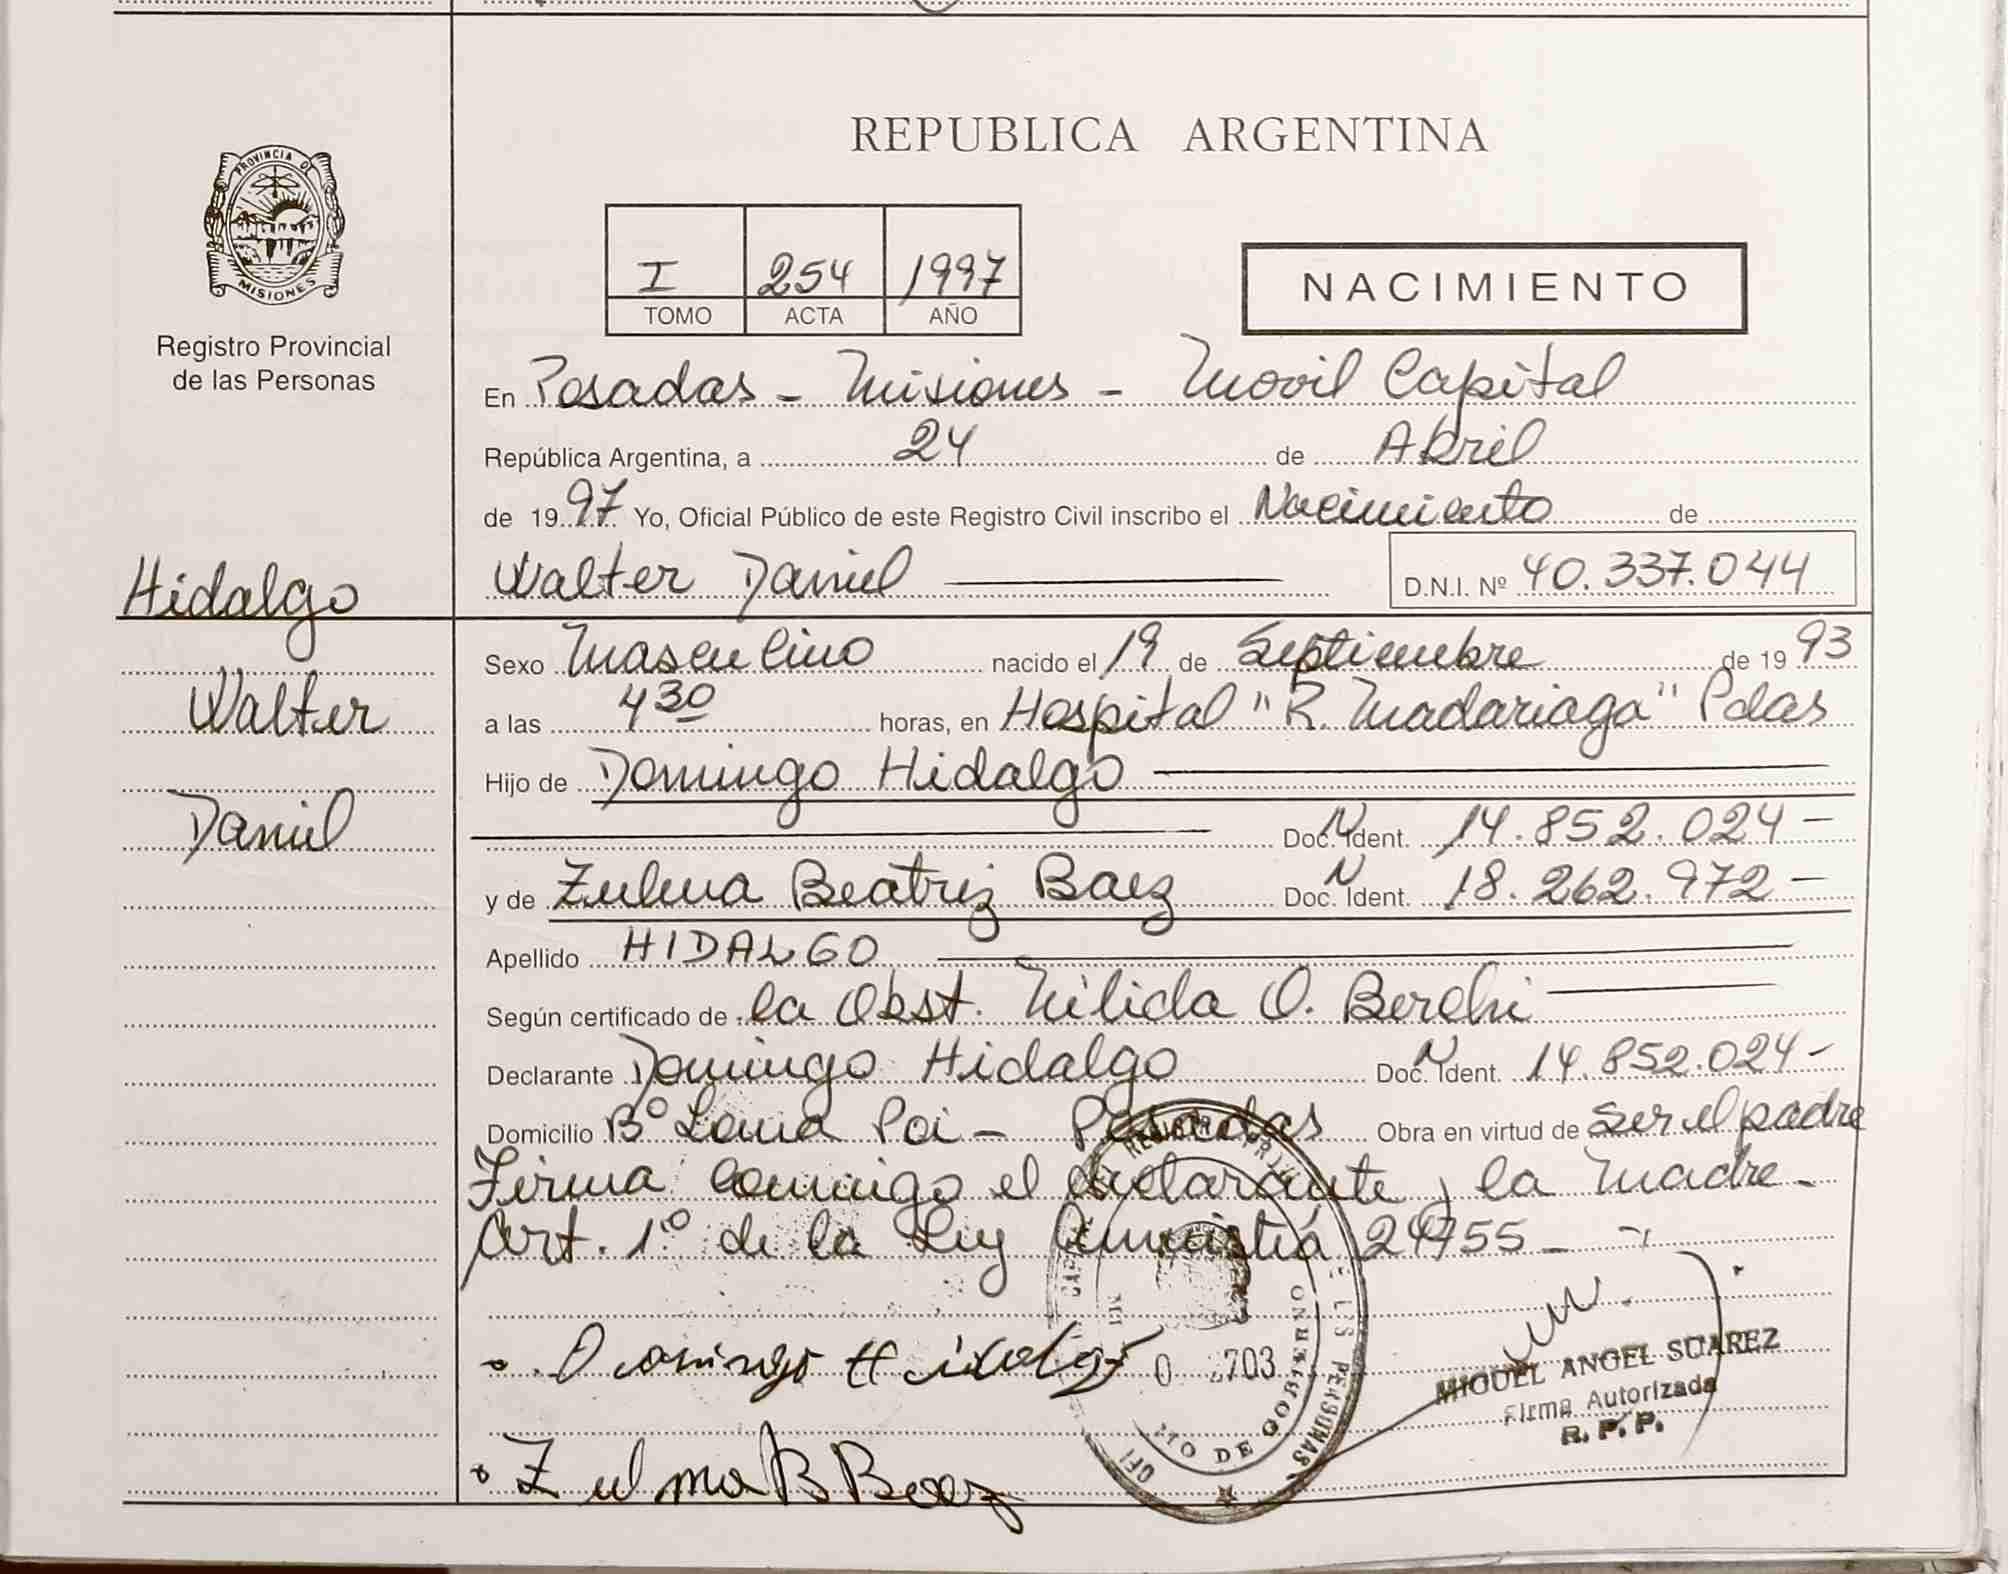 REPUBLICA ARGENTINA
PROVINCIA DE
MISIONES
Registro Provincial
de las Personas
I 254 1997
TOMO ACTA AÑO
NACIMIENTO
En Posadas - Misiones - Movil Capital
República Argentina, a 24 de Abril
de 1997 Yo, Oficial Público de este Registro Civil inscribo el Nacimiento de
Walter Daniel D.N.I. Nº 40.337.044
Hidalgo
Walter
Daniel
Sexo Masculino nacido el 19 de Septiembre de 1993
a las 4 30 horas, en Hospital "R. Madariaga" Pdas
Hijo de Domingo Hidalgo
Doc. N Ident. 14.852.024-
y de Zulma Beatriz Baez Doc. N Ident. 18.262.972-
Apellido HIDALGO
Según certificado de la Obst. Nilida O. Berchi
Declarante Domingo Hidalgo Doc. N Ident. 14.852.024-
Domicilio Bº Loma Poi - Posadas Obra en virtud de ser el padre
Firma conmigo el declarante y la madre-
Art. 1º de la Ley Amnistiá 24755-
Domingo Hidalgo
Zulma B Baez
703
DE GOBIERNO
PERSONAS
MIGUEL ANGEL SUAREZ
Firma Autorizada
R. P. P.